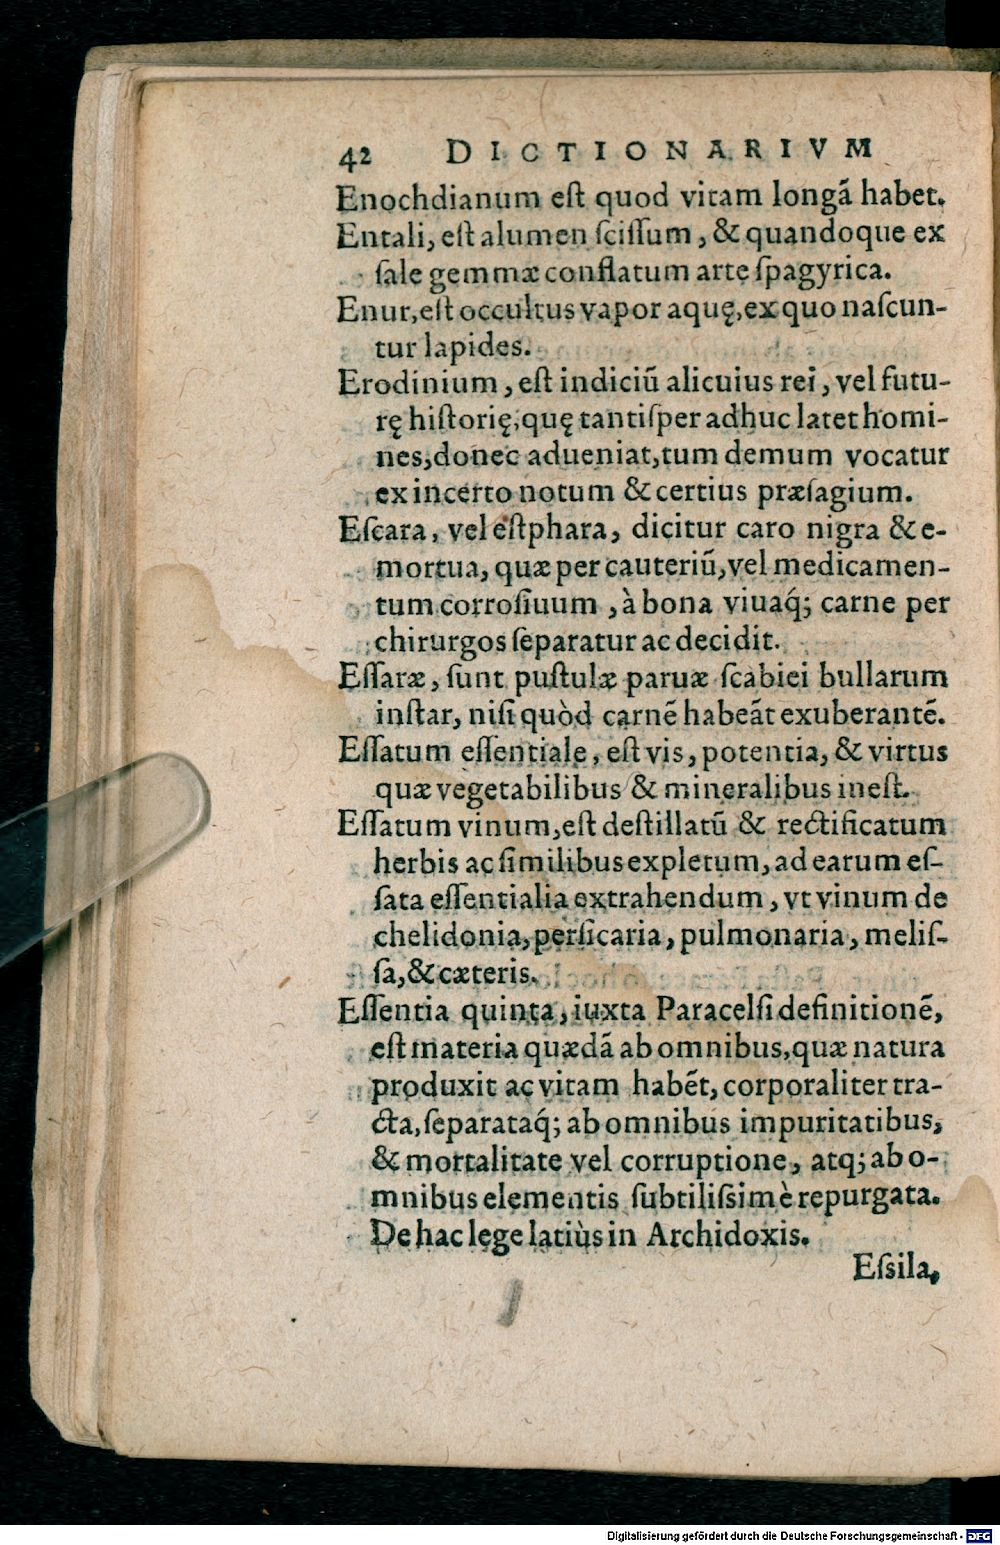 42 DICTIONARIVM
Enochdianum eſt quod vitam longã habet.
Entali, eſt alumen ſciſſum, & quandoque ex
ſale gemmæ conflatum arte ſpagyrica.
Enur, eſt occultus vapor aquę, ex quo naſcun-
tur lapides.
Erodinium, eſt indiciũ alicuius rei, vel futu-
rę hiſtorię, quę tantiſper adhuc latet homi-
nes, donec adueniat, tum demum vocatur
ex incerto notum & certius præſagium.
Eſcara, vel eſtphara, dicitur caro nigra & e-
mortua, quæ per cauteriũ, vel medicamen-
tum corroſiuum, à bona viuaq́; carne per
chirurgos ſeparatur ac decidit.
Eſſaræ, ſunt puſtulæ paruæ ſcabiei bullarum
inſtar, niſi quòd carnẽ habeãt exuberantẽ.
Eſſatum eſſentiale, eſt vis, potentia, & virtus
quæ vegetabilibus & mineralibus ineſt.
Eſſatum vinum, eſt deſtillatũ & rectificatum
herbis ac ſimilibus expletum, ad earum eſ-
ſata eſſentialia extrahendum, vt vinum de
chelidonia, perſicaria, pulmonaria, meliſ-
ſa, & cæteris.
Eſſentia quinta, iuxta Paracelſi definitionẽ,
eſt materia quædã ab omnibus, quæ natura
produxit ac vitam habẽt, corporaliter tra-
cta, ſeparataq́; ab omnibus impuritatibus,
& mortalitate vel corruptione, atq; ab o-
mnibus elementis ſubtiliſsimè repurgata.
De hac lege latiùs in Archidoxis.
Eſsila,
Digitalisierung gefördert durch die Deutsche Forschungsgemeinschaft - DFG